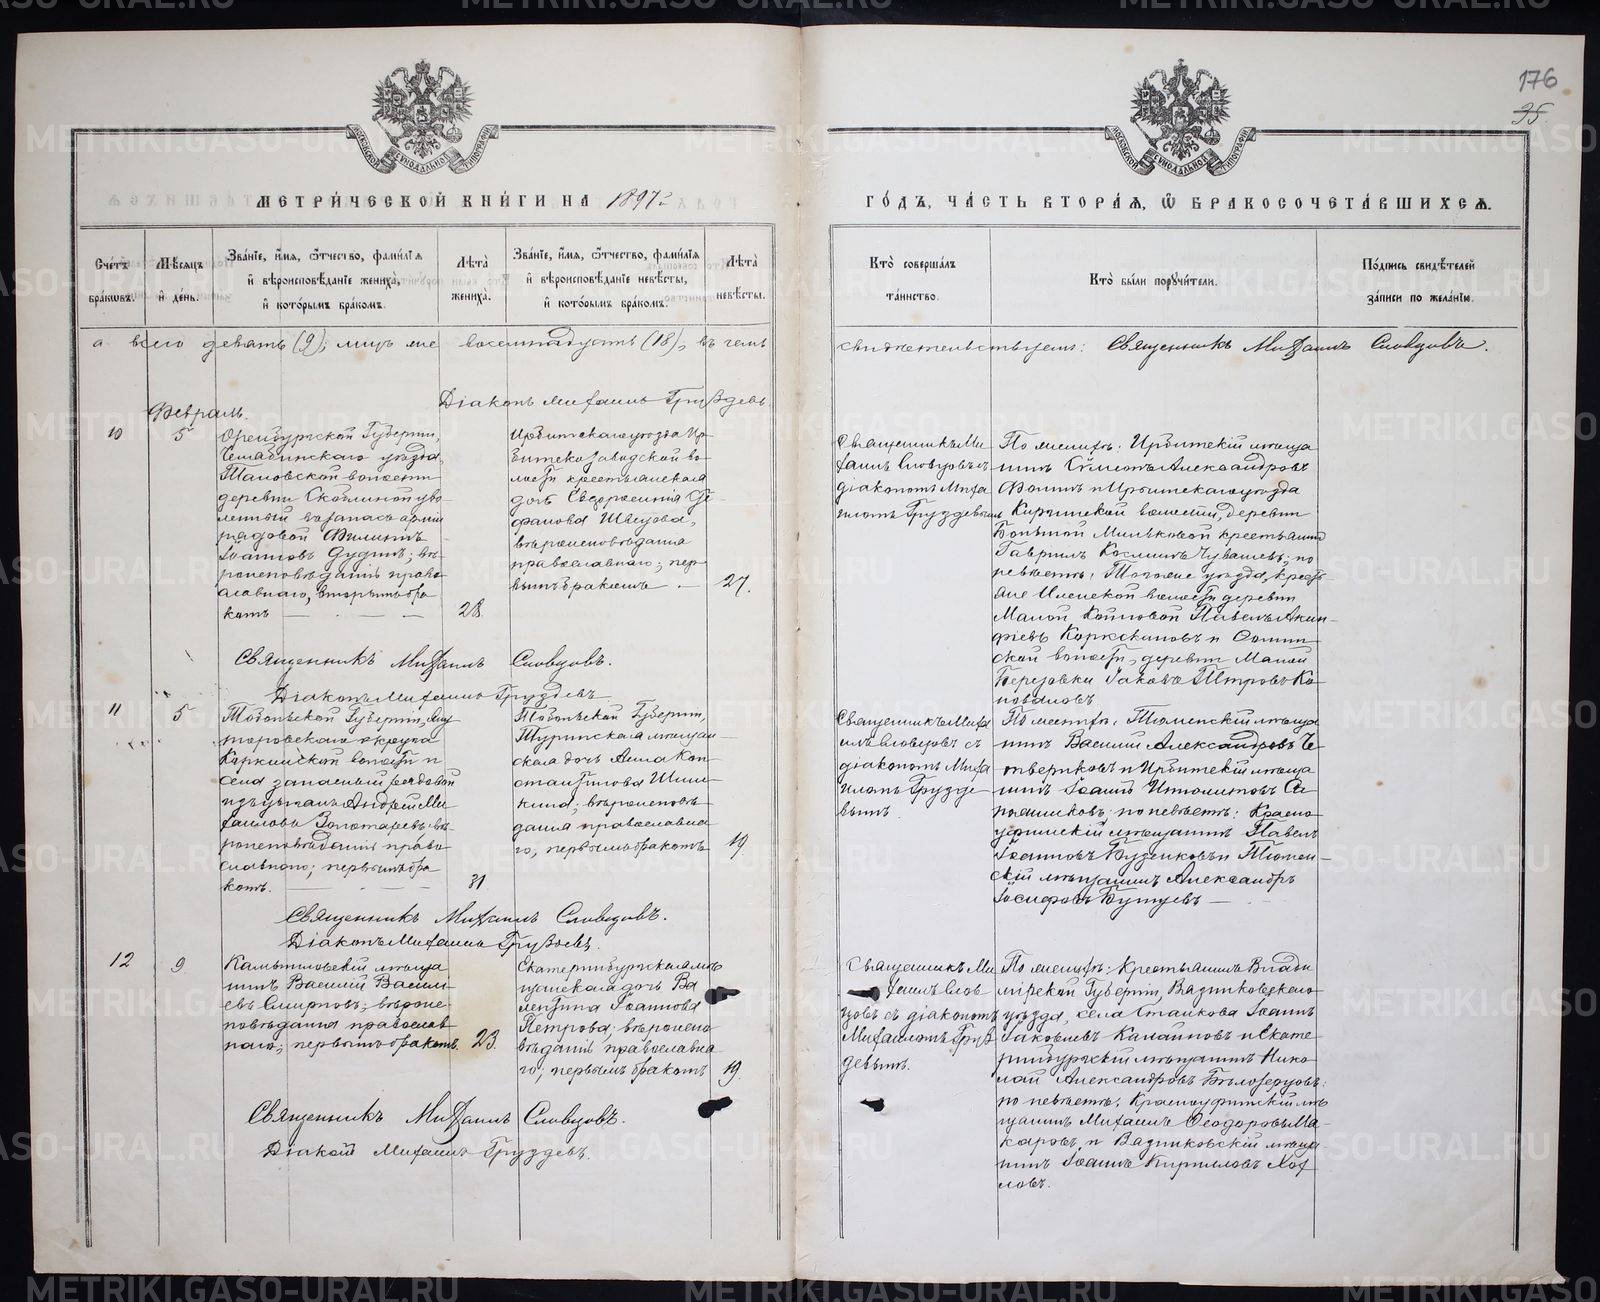 176
35.
МЕТРИЧЕСКОЙ КНИГИ НА 1897 г.
ГОДЪ, ЧАСТЬ ВТОРАЯ, Ѡ БРАКОСОЧЕТАВШИХСЯ.
Счетъ браковъ.
Мѣсяцъ и день.
Званіе, имя, отчество, фамилія
и вѣроисповѣданіе жениха,
и которымъ бракомъ.
Лѣта
жениха.
Званіе, имя, отчество, фамилія
и вѣроисповѣданіе невѣсты,
и которымъ бракомъ.
Лѣта
невѣсты.
Кто совершалъ
таинство.
Кто были поручители.
Подпись свидѣтелей
записи по желанію.
а всего девять (9); лицъ же восемнадцать (18), въ чемъ
свидѣтельствуемъ: Священникъ Михаилъ Словцовъ.
Діаконъ Михаилъ Груздевъ
Февраль.
10
5
Оренбургской Губерніи,
Челябинскаго уѣзда,
Таловской волости
деревни Скоблиной уво-
ленный въ запасъ арміи
рядовой Филиппъ
Іоанновъ Дудинъ; вѣ-
роисповѣданія право-
славнаго, вторымъ бра-
комъ
28.
Ирбитскаго уѣзда Ир-
битскозаводской во-
лости крестьянская
дочь Евдокія
Швецова,
вѣроисповѣданія
православнаго; пер-
вымъ бракомъ
27.
Священникъ Ми-
хаилъ Словцовъ съ
діакономъ Миха-
иломъ Груздевымъ
По женихѣ: Ирбитскій мѣща-
нинъ Александровъ
Фоминъ и Ирбитскаго уѣзда
Киргинской волости, деревни
Боярской крестьянинъ
Гавріилъ Косминъ Чувашевъ; по
невѣстѣ: Того же уѣзда, кресть-
яне волости деревни
Малой Койновой Павелъ Акин-
фіевъ и
ской волости, деревни Малой
Березовки Іаковъ Петровъ Ко-
новаловъ
Священникъ Михаилъ Словцовъ.
Діаконъ Михаилъ Груздевъ
11
5
Тобольской Губерніи, Ялу-
торовскаго округа
Коркинской волости и
села запасный рядовой
изъ мѣщанъ Андрей Ми-
хайловъ Золотаревъ; вѣ-
роисповѣданія право-
славнаго; первымъ бра-
комъ.
31
Тобольской Губерніи,
Туринская мѣщан-
ская дочь Анна Кон-
стантинова Шиш-
кина; вѣроисповѣ-
данія православна-
го, первымъ бракомъ
19.
Священникъ Миха-
илъ Словцовъ съ
діакономъ Миха-
иломъ Грузде-
вымъ
По женихѣ: Тюменскій мѣща-
нинъ Василій Александровъ Че-
твериковъ и Ирбитскій мѣща-
нинъ Іоаннъ Ипполитовъ
по невѣстѣ: Красно-
уфимскій мѣщанинъ Павелъ
Іоанновъ Бузенковъ и Тюмен-
скій мѣщанинъ Александръ
Іосифовъ
Священникъ Михаилъ Словцовъ.
Діаконъ Михаилъ Груздевъ.
12
9
Камышловскій мѣща-
нинъ Василій Василь-
евъ Смирновъ; вѣроис-
повѣданія православ-
наго; первымъ бракомъ.
23.
Екатеринбургская мѣ-
щанская дочь Ва-
лентина Іоаннова
Петрова; вѣроиспо-
вѣданія православна-
го; первымъ бракомъ
19.
Священникъ Ми-
хаилъ Слов-
цовъ съ діакономъ
Михаиломъ Груз-
девымъ.
По женихѣ: Крестьянинъ Влади-
мірской Губерніи, Вязниковскаго
уѣзда, села Станкова Іоаннъ
Іаковлевъ и Екате-
ринбургскій мѣщанинъ Нико-
лай Александровъ Бѣлозерцовъ:
по невѣстѣ: Красноуфимскій мѣ-
щанинъ Михаилъ Ѳеодоровъ Ма-
каровъ и Вязниковскій мѣща-
нинъ Іоаннъ Кирилловъ Коз-
ловъ.
Священникъ Михаилъ Словцовъ.
Діаконъ Михаилъ Груздевъ.
METRIKI.GASO-URAL.RU